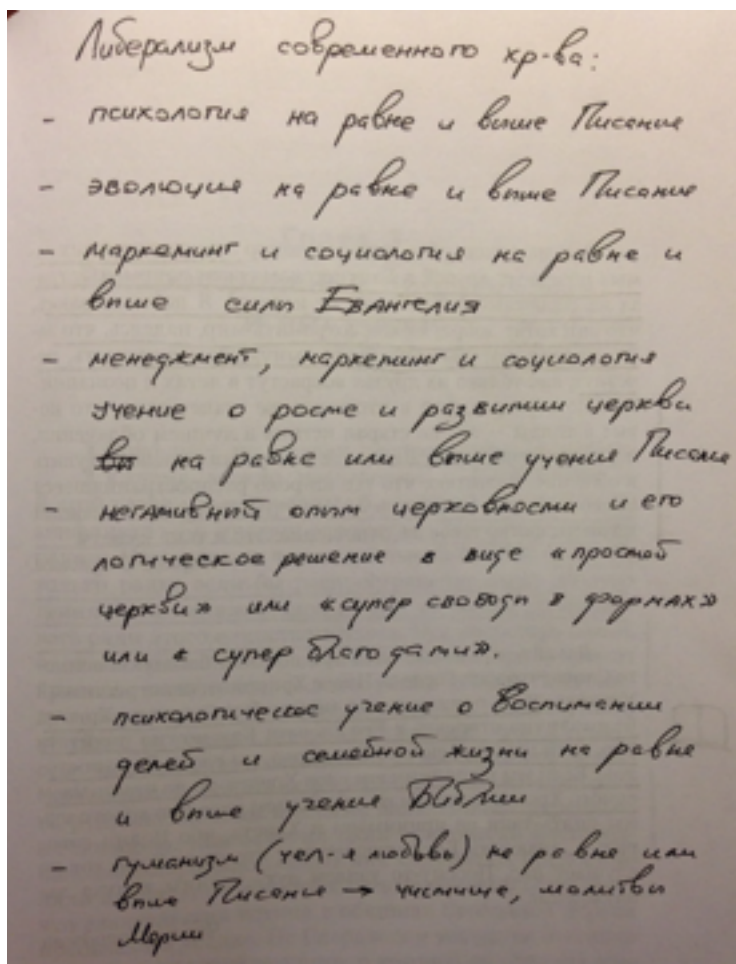 Либерализм современного хр-ва:
- психология на равне и выше Писание
- эволюция на равне и выше Писание
- маркетинг и социология на равне и
выше силы Евангелия
- менеджмент, маркетинг и социология
учение о росте и развитии церкви
на равне или выше учения Писание
- негативный опыт церковности и его
логическое решение в виде «простой
церкви» или «супер свободы в формах»
или «супер благодати».
- психологическое учение о воспитании
детей и семейной жизни на равне
и выше учение Библии
- гуманизм (чел-я любовь) на равне или
выше Писанье → чистище, молитвы
Марии